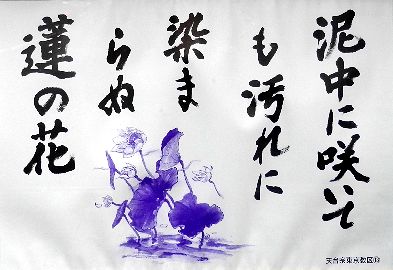 泥中に咲いて
も汚れに
染ま
らぬ
蓮の花
天台宗東京教区⑬